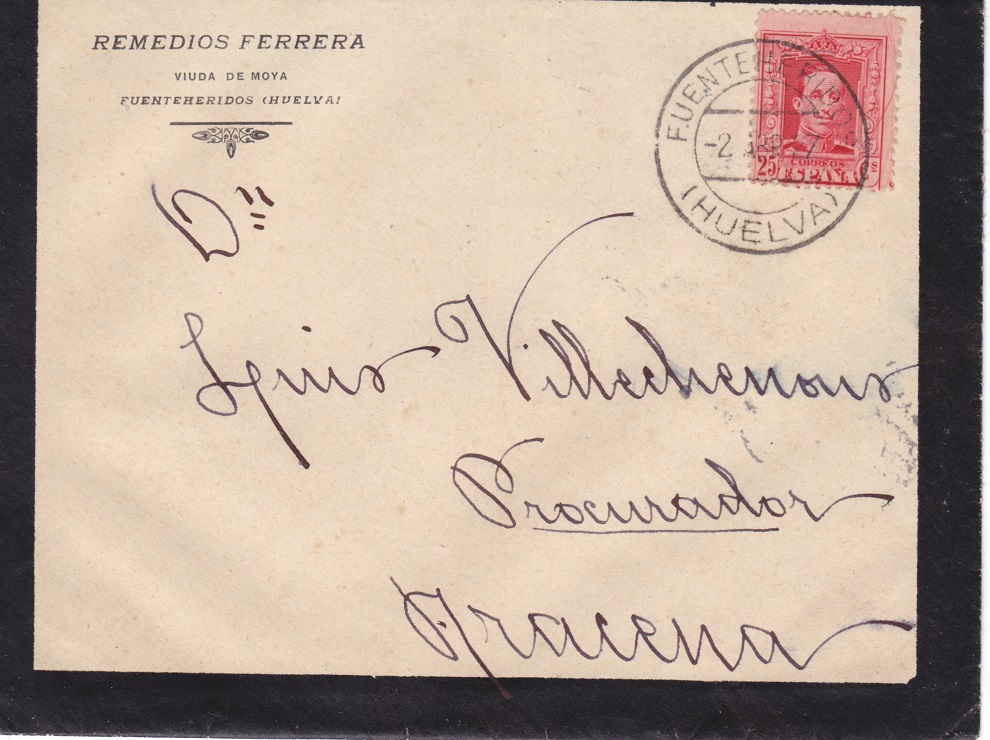 REMEDIOS FERRERA
VIUDA DE MOYA
FUENTEHERIDOS (HUELVA)
FUENTEHERIDOS
-2 ABR 27
(HUELVA)
CORREOS
25 Cs
ESPAÑA
Dn
Luis Villechenous
Procurador
Aracena